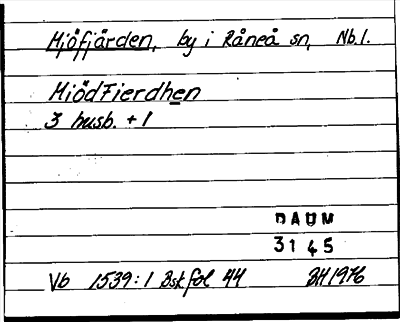 Mjöfjärden, by i Råneå sn, Nb.l.
MiödFierdhen
3 husb. + 1
DAUM
3145
Vb 1539:1 Bskfol 44 BH1976